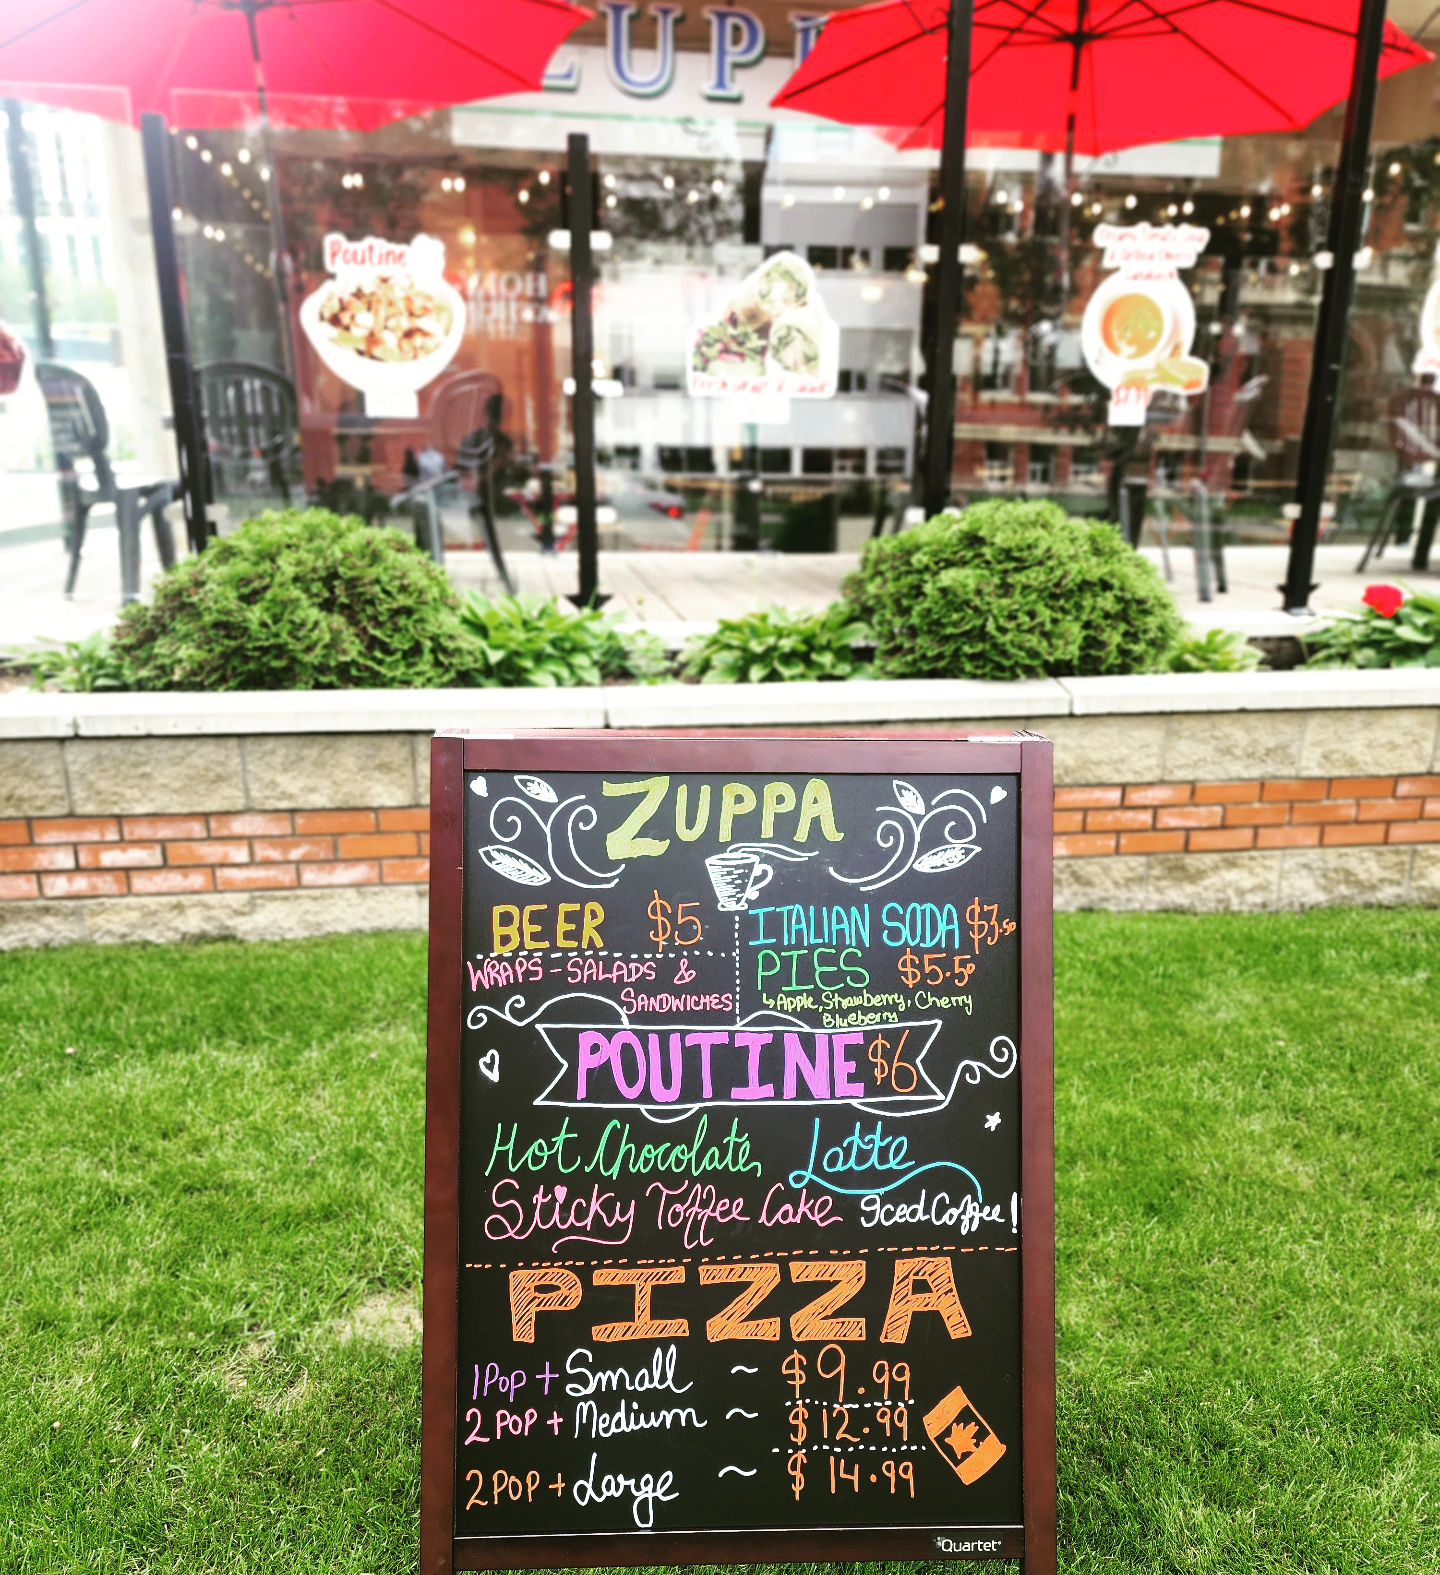 Poutine
ZUPPA
BEER $5
ITALIAN SODA $3.50
WRAPS - SALADS &
SANDWICHES
PIES $5.50
↳ Apple, Strawberry, Cherry
Blueberry
POUTINE $6
Hot Chocolate Latte
Sticky Toffee Cake Iced Coffee!
PIZZA
1 Pop + Small ~ $9.99
2 POP + Medium ~ $12.99
2 POP + Large ~ $14.99
Quartet